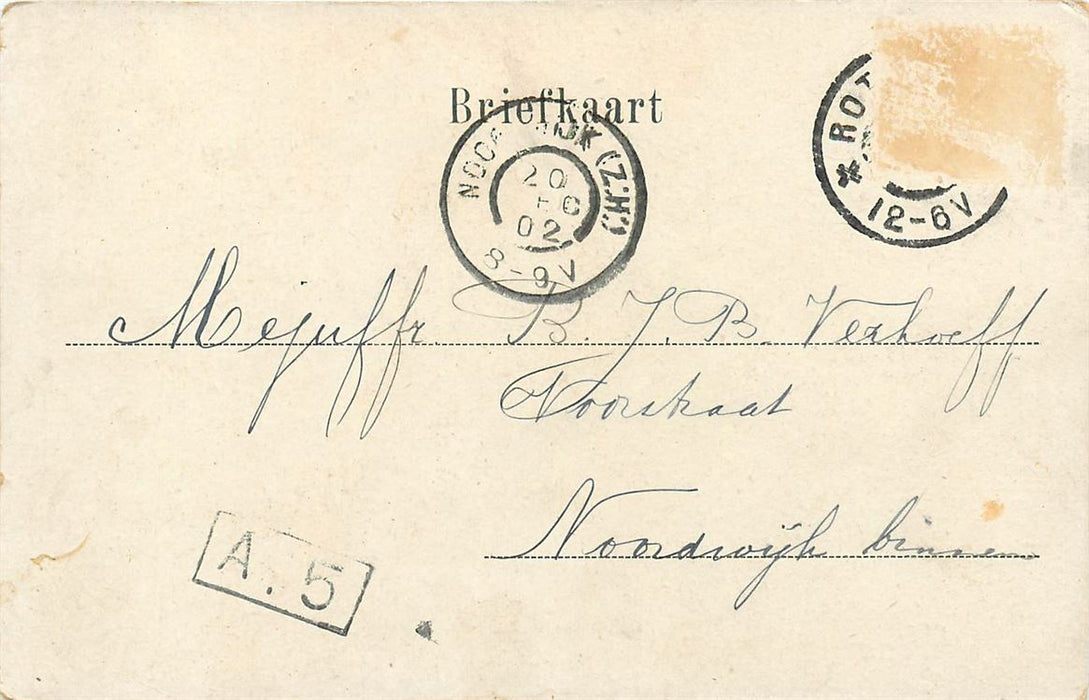 Briefkaart
NOO WIJK (Z.H.)
20
02
8-9V
ROT
12-6V
Mejuffr. B. J. B. Verhoeff
Voorstraat
Noordwijk binnen
A.5